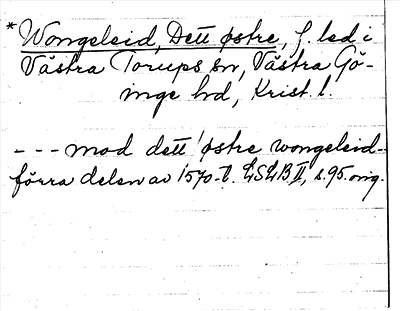 * Wongeleid, Dett østre, f. led i
Västra Torups sn, Västra Gö-
inge hd, Krist. l.
--- mod dett østre wongeleid--
förra delen av 1570-t. LSLB II, s. 95. orig.